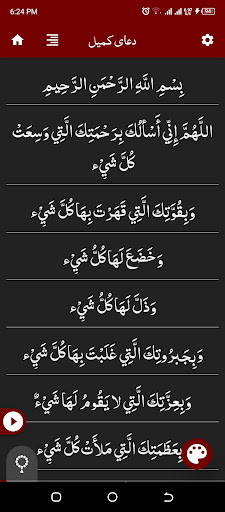 6:24 PM
دعای کمیل
بِسْمِ اللَّهِ الرَّحْمَنِ الرَّحِيمِ
اللَّهُمَّ إِنِّي أَسْأَلُكَ بِرَحْمَتِكَ الَّتِي وَسِعَتْ
كُلَّ شَيْءٍ
وَبِقُوَّتِكَ الَّتِي قَهَرْتَ بِهَا كُلَّ شَيْءٍ
وَخَضَعَ لَهَا كُلُّ شَيْءٍ
وَذَلَّ لَهَا كُلُّ شَيْءٍ
وَبِجَبَرُوتِكَ الَّتِي غَلَبْتَ بِهَا كُلَّ شَيْءٍ
وَبِعِزَّتِكَ الَّتِي لا يَقُومُ لَهَا شَيْءٌ
بِعَظَمَتِكَ الَّتِي مَلَأَتْ كُلَّ شَيْءٍ